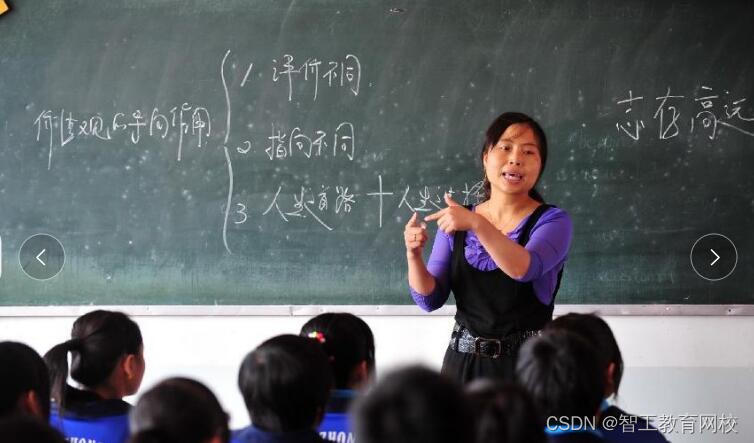 价值观的导向作用
1. 评价不同
2. 指向不同
3 人生道路 + 人生选择
志存高远
ZHON
CSDN @智工教育网校